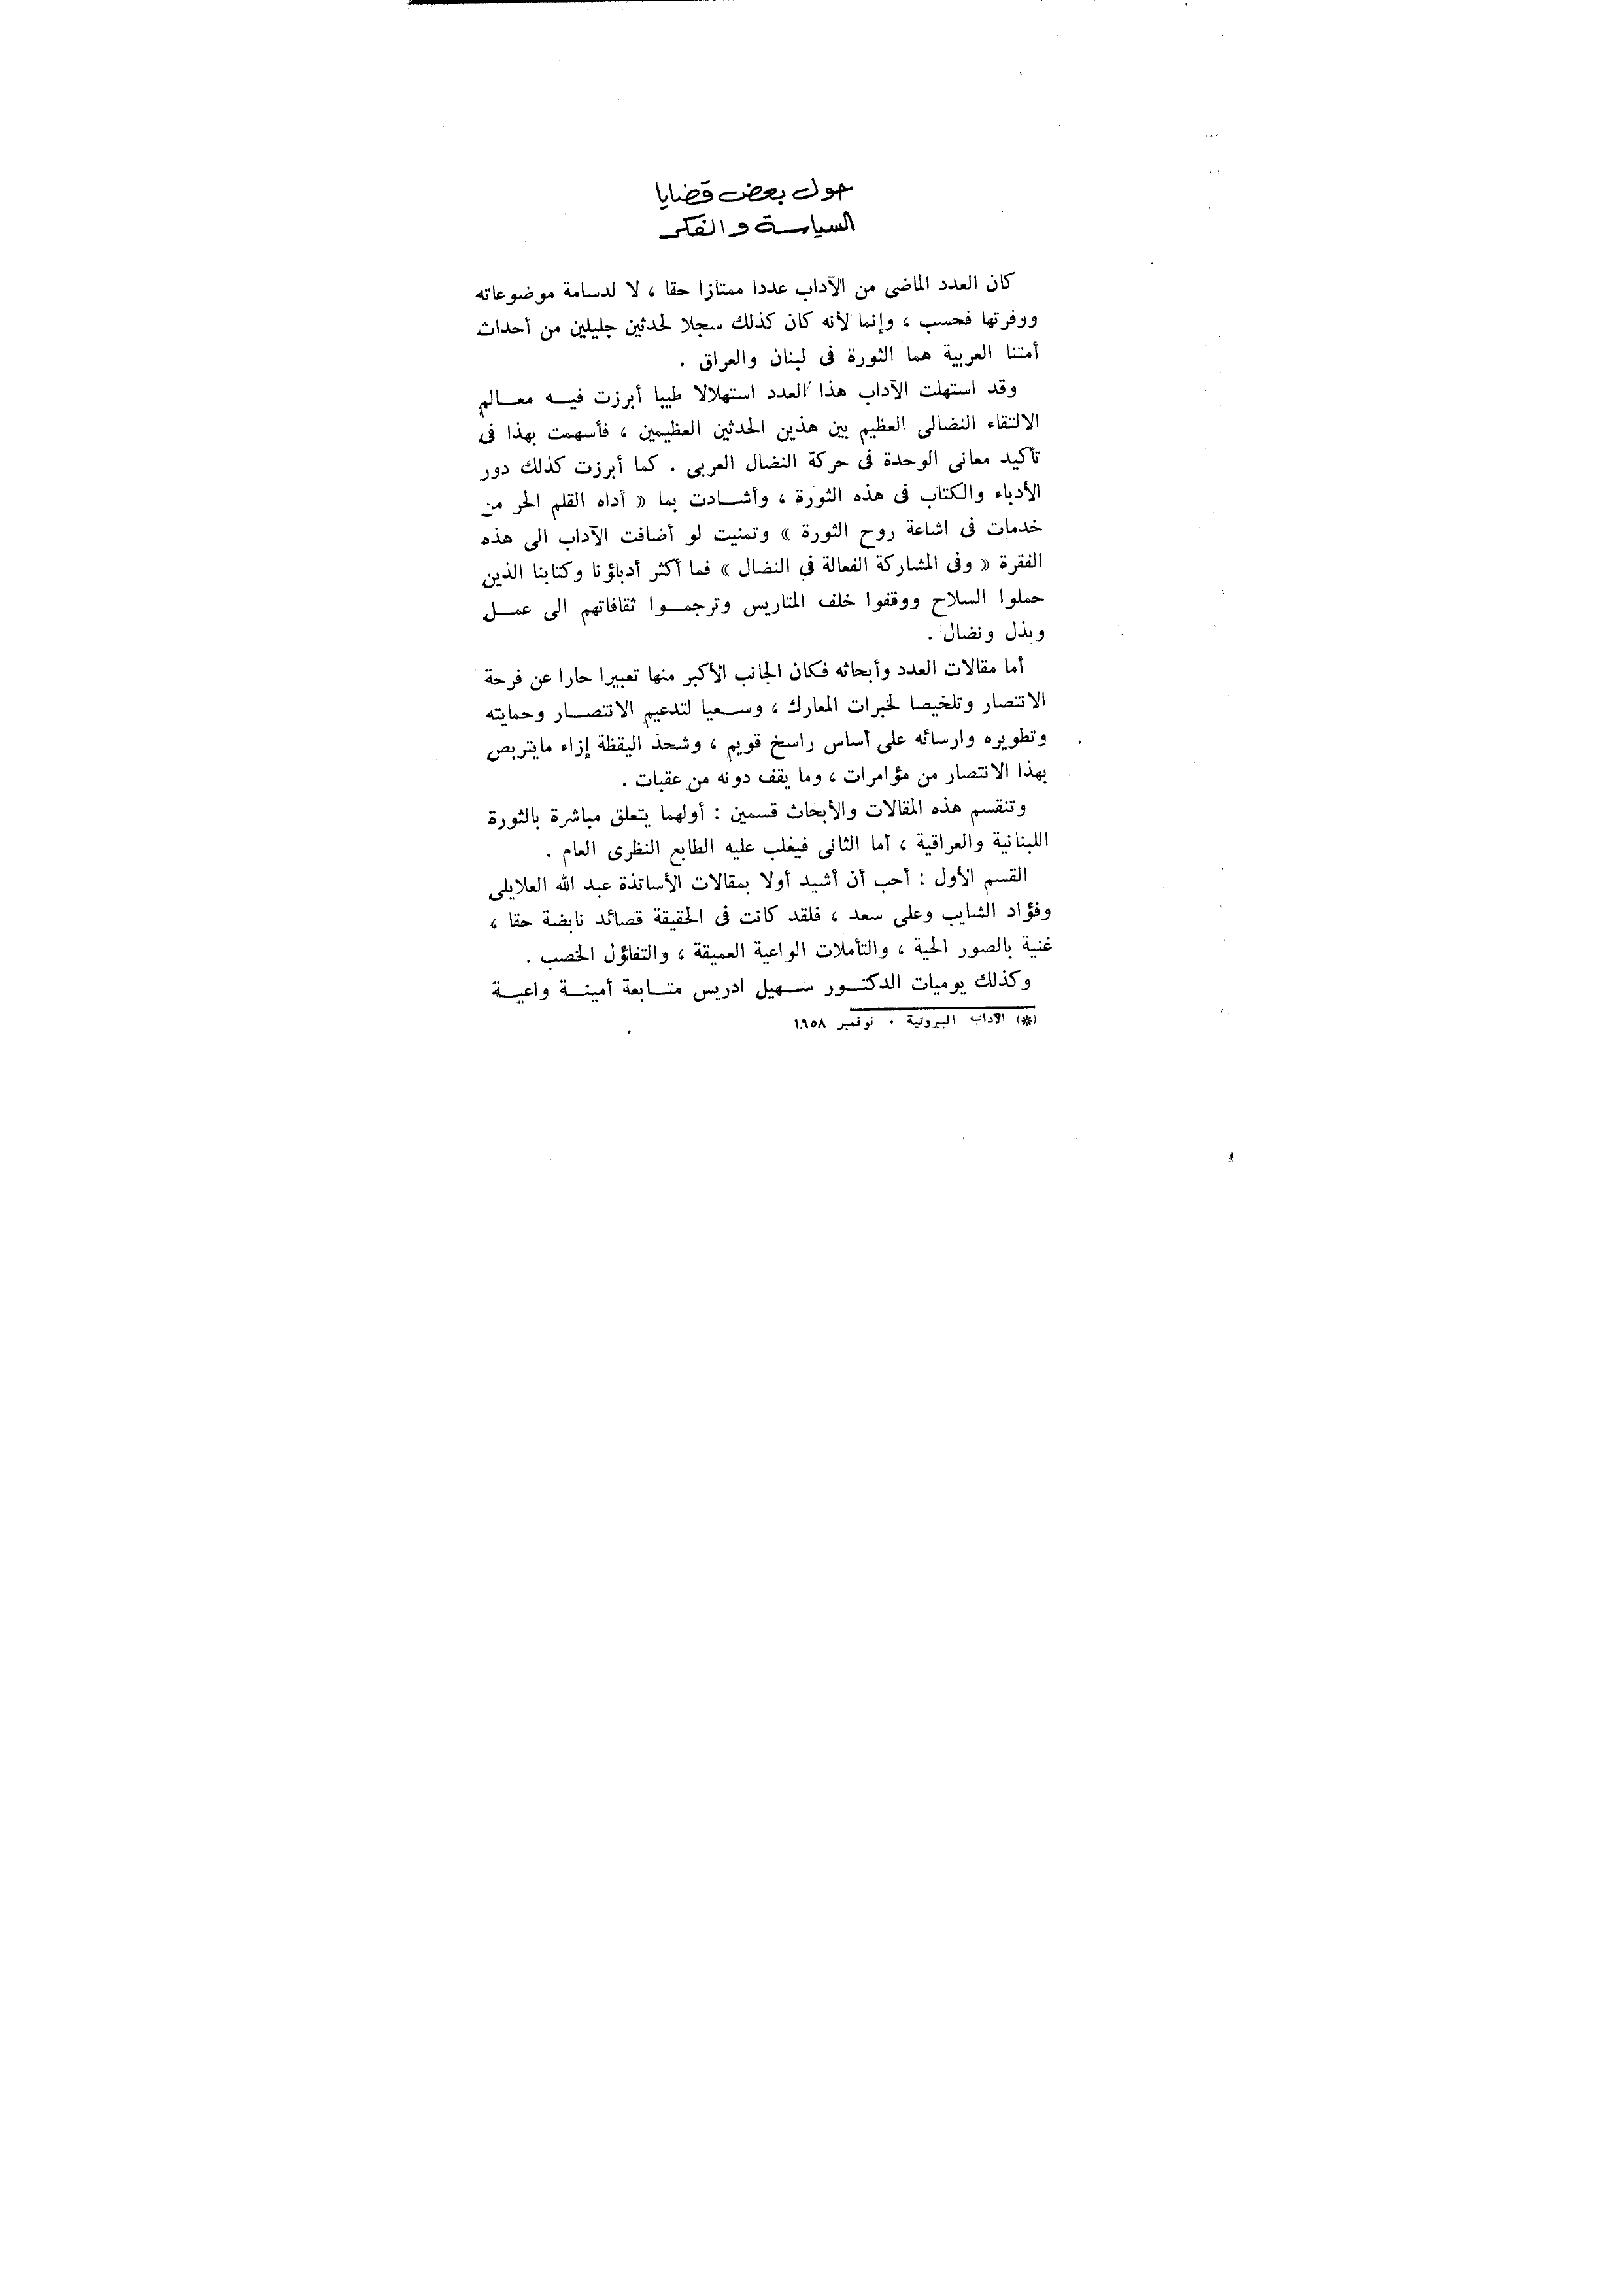 حول بعض قضايا
السياسة والفكر
كان العدد الماضى من الآداب عددا ممتازا حقا ، لا لدسامة موضوعاته
ووفرتها فحسب ، وإنما لأنه كان كذلك سجلا لحدثين جليلين من أحداث
أمتنا العربية هما الثورة فى لبنان والعراق .
وقد استهلت الآداب هذا العدد استهلالا طيبا أبرزت فيه معالم
الالتقاء النضالى العظيم بين هذين الحدثين العظيمين ، فأسهمت بهذا فى
تأكيد معانى الوحدة فى حركة النضال العربى . كما أبرزت كذلك دور
الأدباء والكتاب فى هذه الثورة ، وأشادت بما « أداه القلم الحر من
خدمات فى اشاعة روح الثورة » وتمنيت لو أضافت الآداب الى هذه
الفقرة « وفى المشاركة الفعالة فى النضال » فما أكثر أدباؤنا وكتابنا الذين
حملوا السلاح ووقفوا خلف المتاريس وترجموا ثقافاتهم الى عمل
وبذل ونضال .
أما مقالات العدد وأبحاثه فكان الجانب الأكبر منها تعبيرا حارا عن فرحة
الانتصار وتلخيصا لخبرات المعارك ، وسعيا لتدعيم الانتصار وحمايته
وتطويره وارسائه على أساس راسخ قويم ، وشحذ اليقظة إزاء مايتربص
بهذا الانتصار من مؤامرات ، وما يقف دونه من عقبات .
وتنقسم هذه المقالات والأبحاث قسمين : أولهما يتعلق مباشرة بالثورة
اللبنانية والعراقية ، أما الثانى فيغلب عليه الطابع النظرى العام .
القسم الأول : أحب أن أشيد أولا بمقالات الأساتذة عبد الله العلايلى
وفؤاد الشايب وعلى سعد ، فلقد كانت فى الحقيقة قصائد نابضة حقا ،
غنية بالصور الحية ، والتأملات الواعية العميقة ، والتفاؤل الخصب .
وكذلك يوميات الدكتور سهيل ادريس متابعة أمينة واعية
(*) الآداب البيروتية . نوفمبر ١٩٥٨